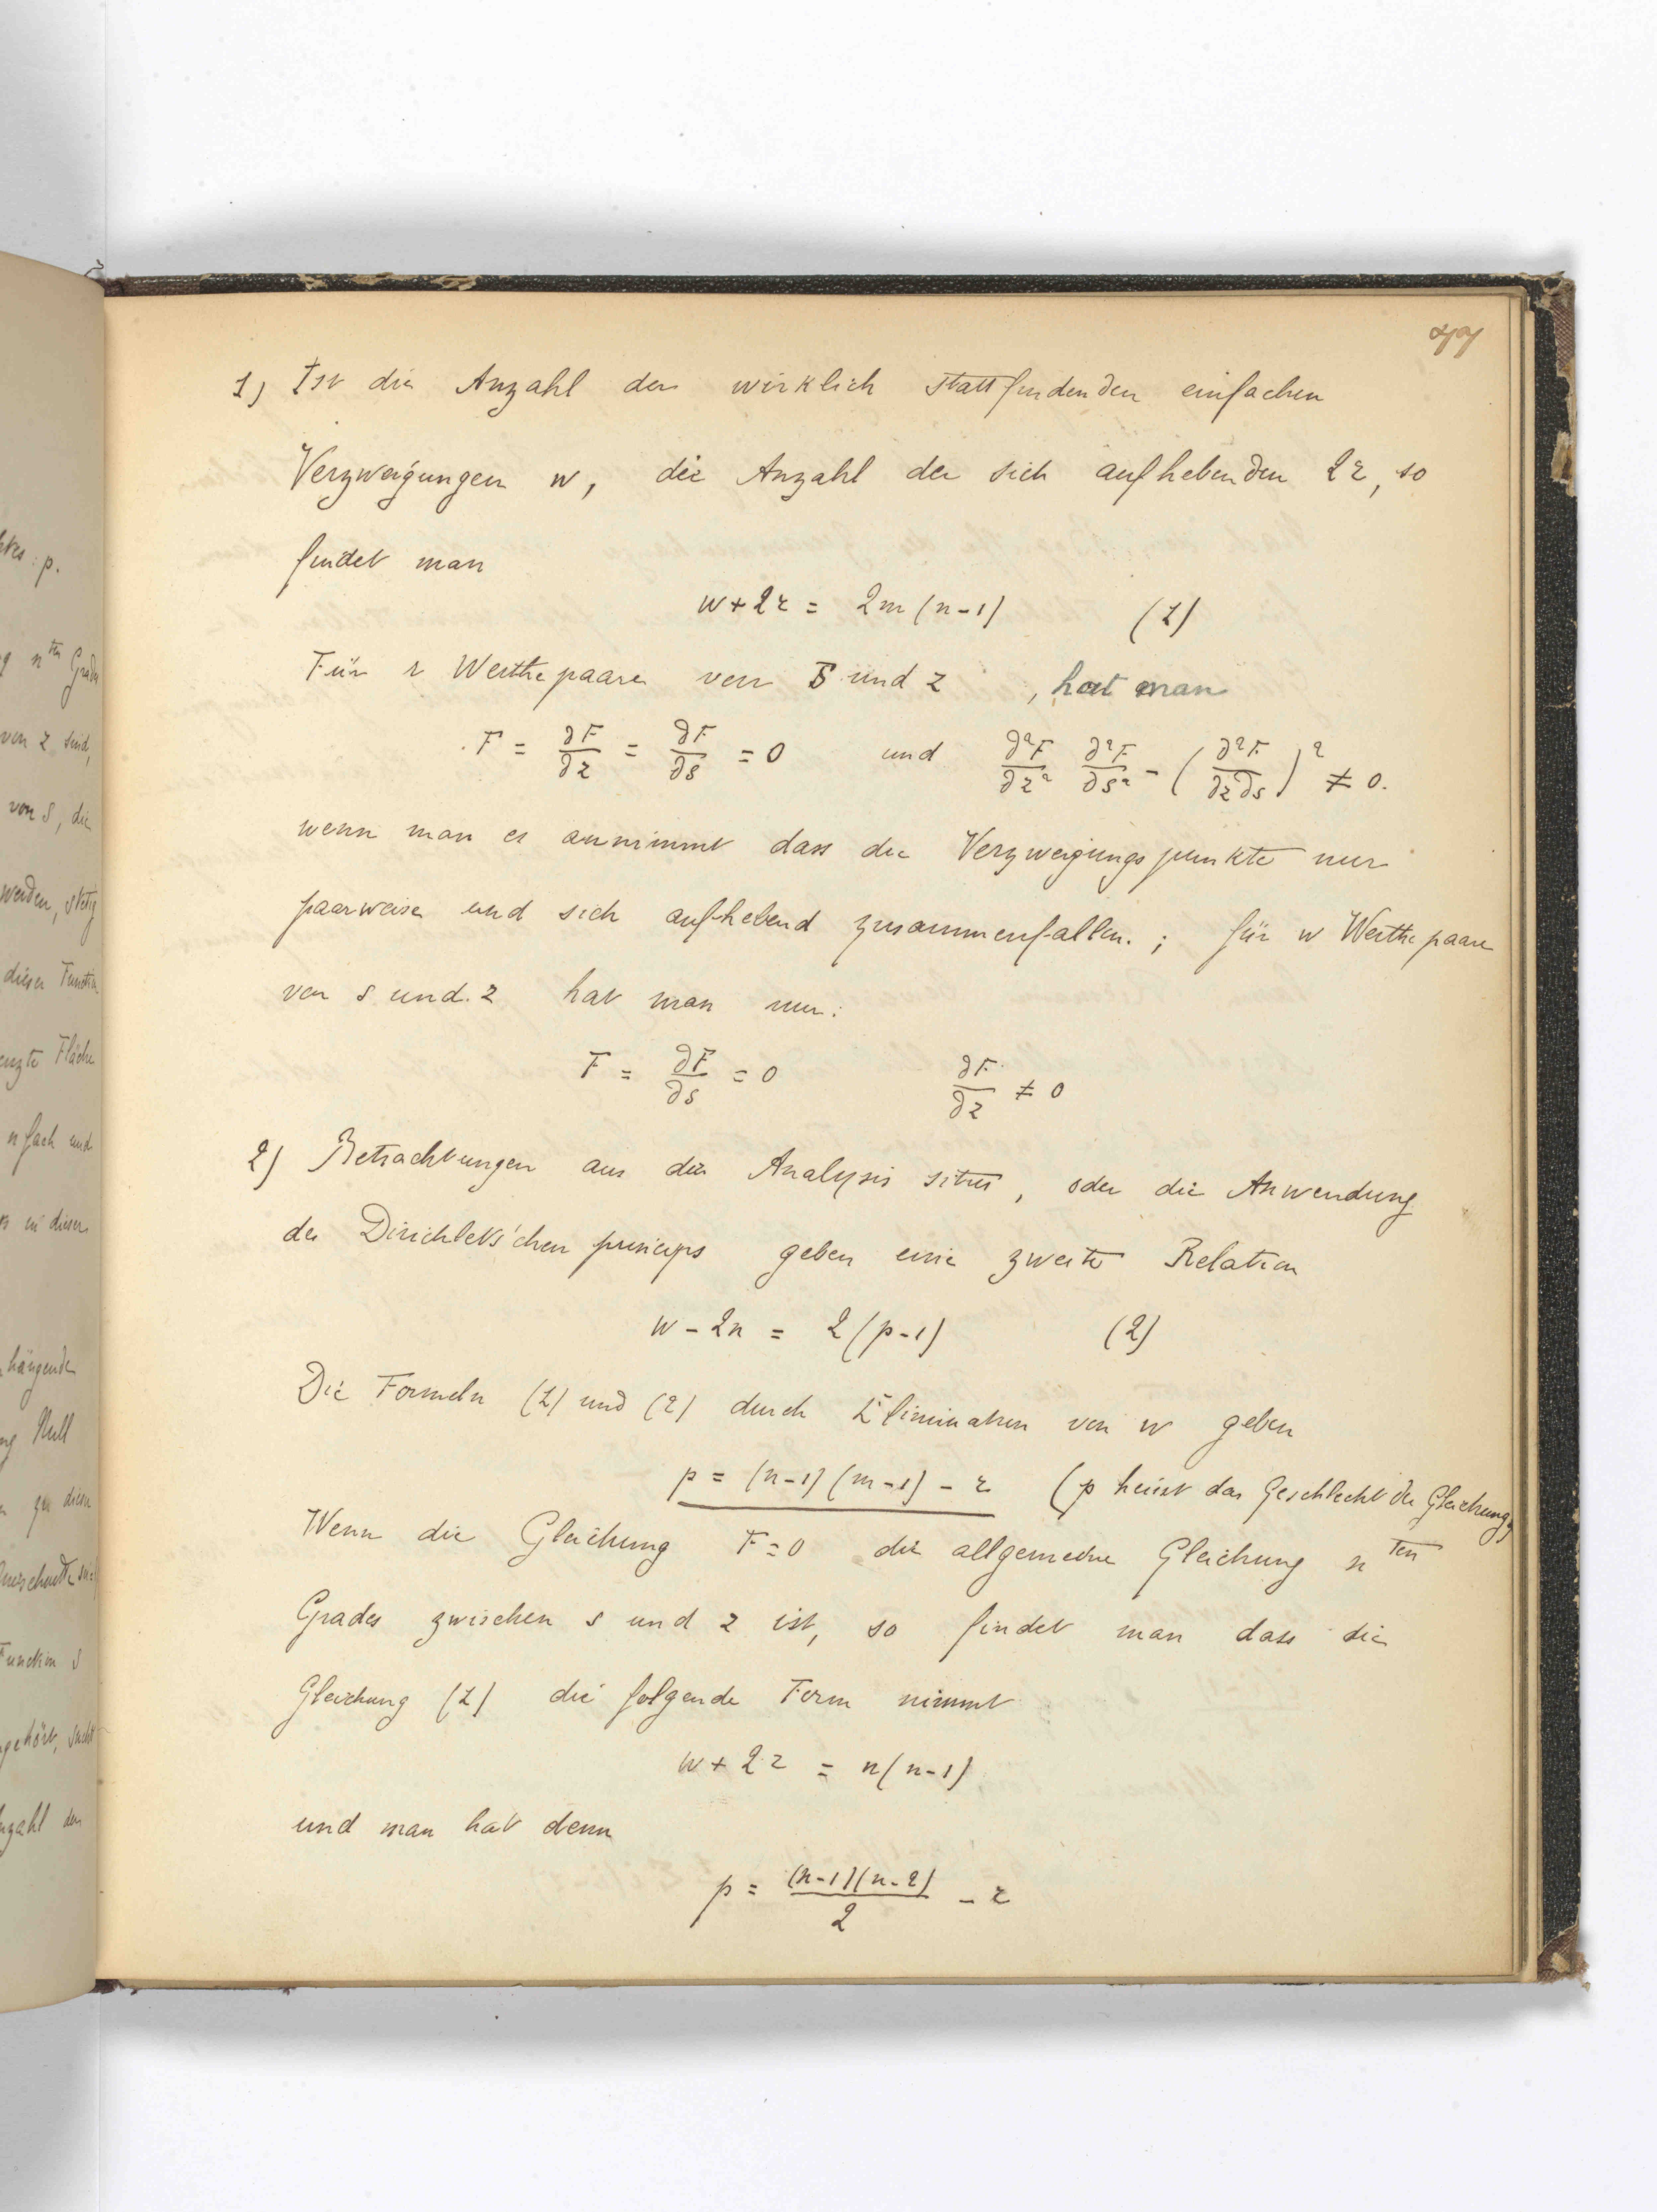 1) Ist die Anzahl der wirklich stattfindenden einfachen
Verzweigungen w, die Anzahl der sich aufhebenden 2r, so
findet man
w + 2r = 2m(n-1) (1)
Für r Werthepaare von S und z , hat man
F = ∂F/∂z = ∂F/∂s = 0 und ∂²F/∂z² ∂²F/∂s² - (∂²F/∂z∂s)² ≠ 0.
wenn man es annimmt dass die Verzweigungspunkte nur
paarweise und sich aufhebend zusammenfallen. ; für w Werthepaare
von s und z hat man nur:
F = ∂F/∂s = 0 ∂F/∂z ≠ 0
2) Betrachtungen aus die Analysis situs, oder die Anwendung
des Dirichlets'chen princips geben eine zweite Relation
w - 2n = 2(p-1) (2)
Die Formeln (1) und (2) durch Elimination von w geben
p = (n-1)(m-1) - r (p heisst das Geschlecht der Gleichung)
Wenn die Gleichung F=0 die allgemeine Gleichung n ten
Grades zwischen s und z ist, so findet man dass die
Gleichung (1) die folgende Form nimmt
w + 2r = n(n-1)
und man hat denn
p = (n-1)(n-2)/2 - r
p.
von z sind,
von S, die
werden, stetig
dieser Function
Fläche
n fach und
in dieser
hängende
Null
zu diesen
Function S
gehört,